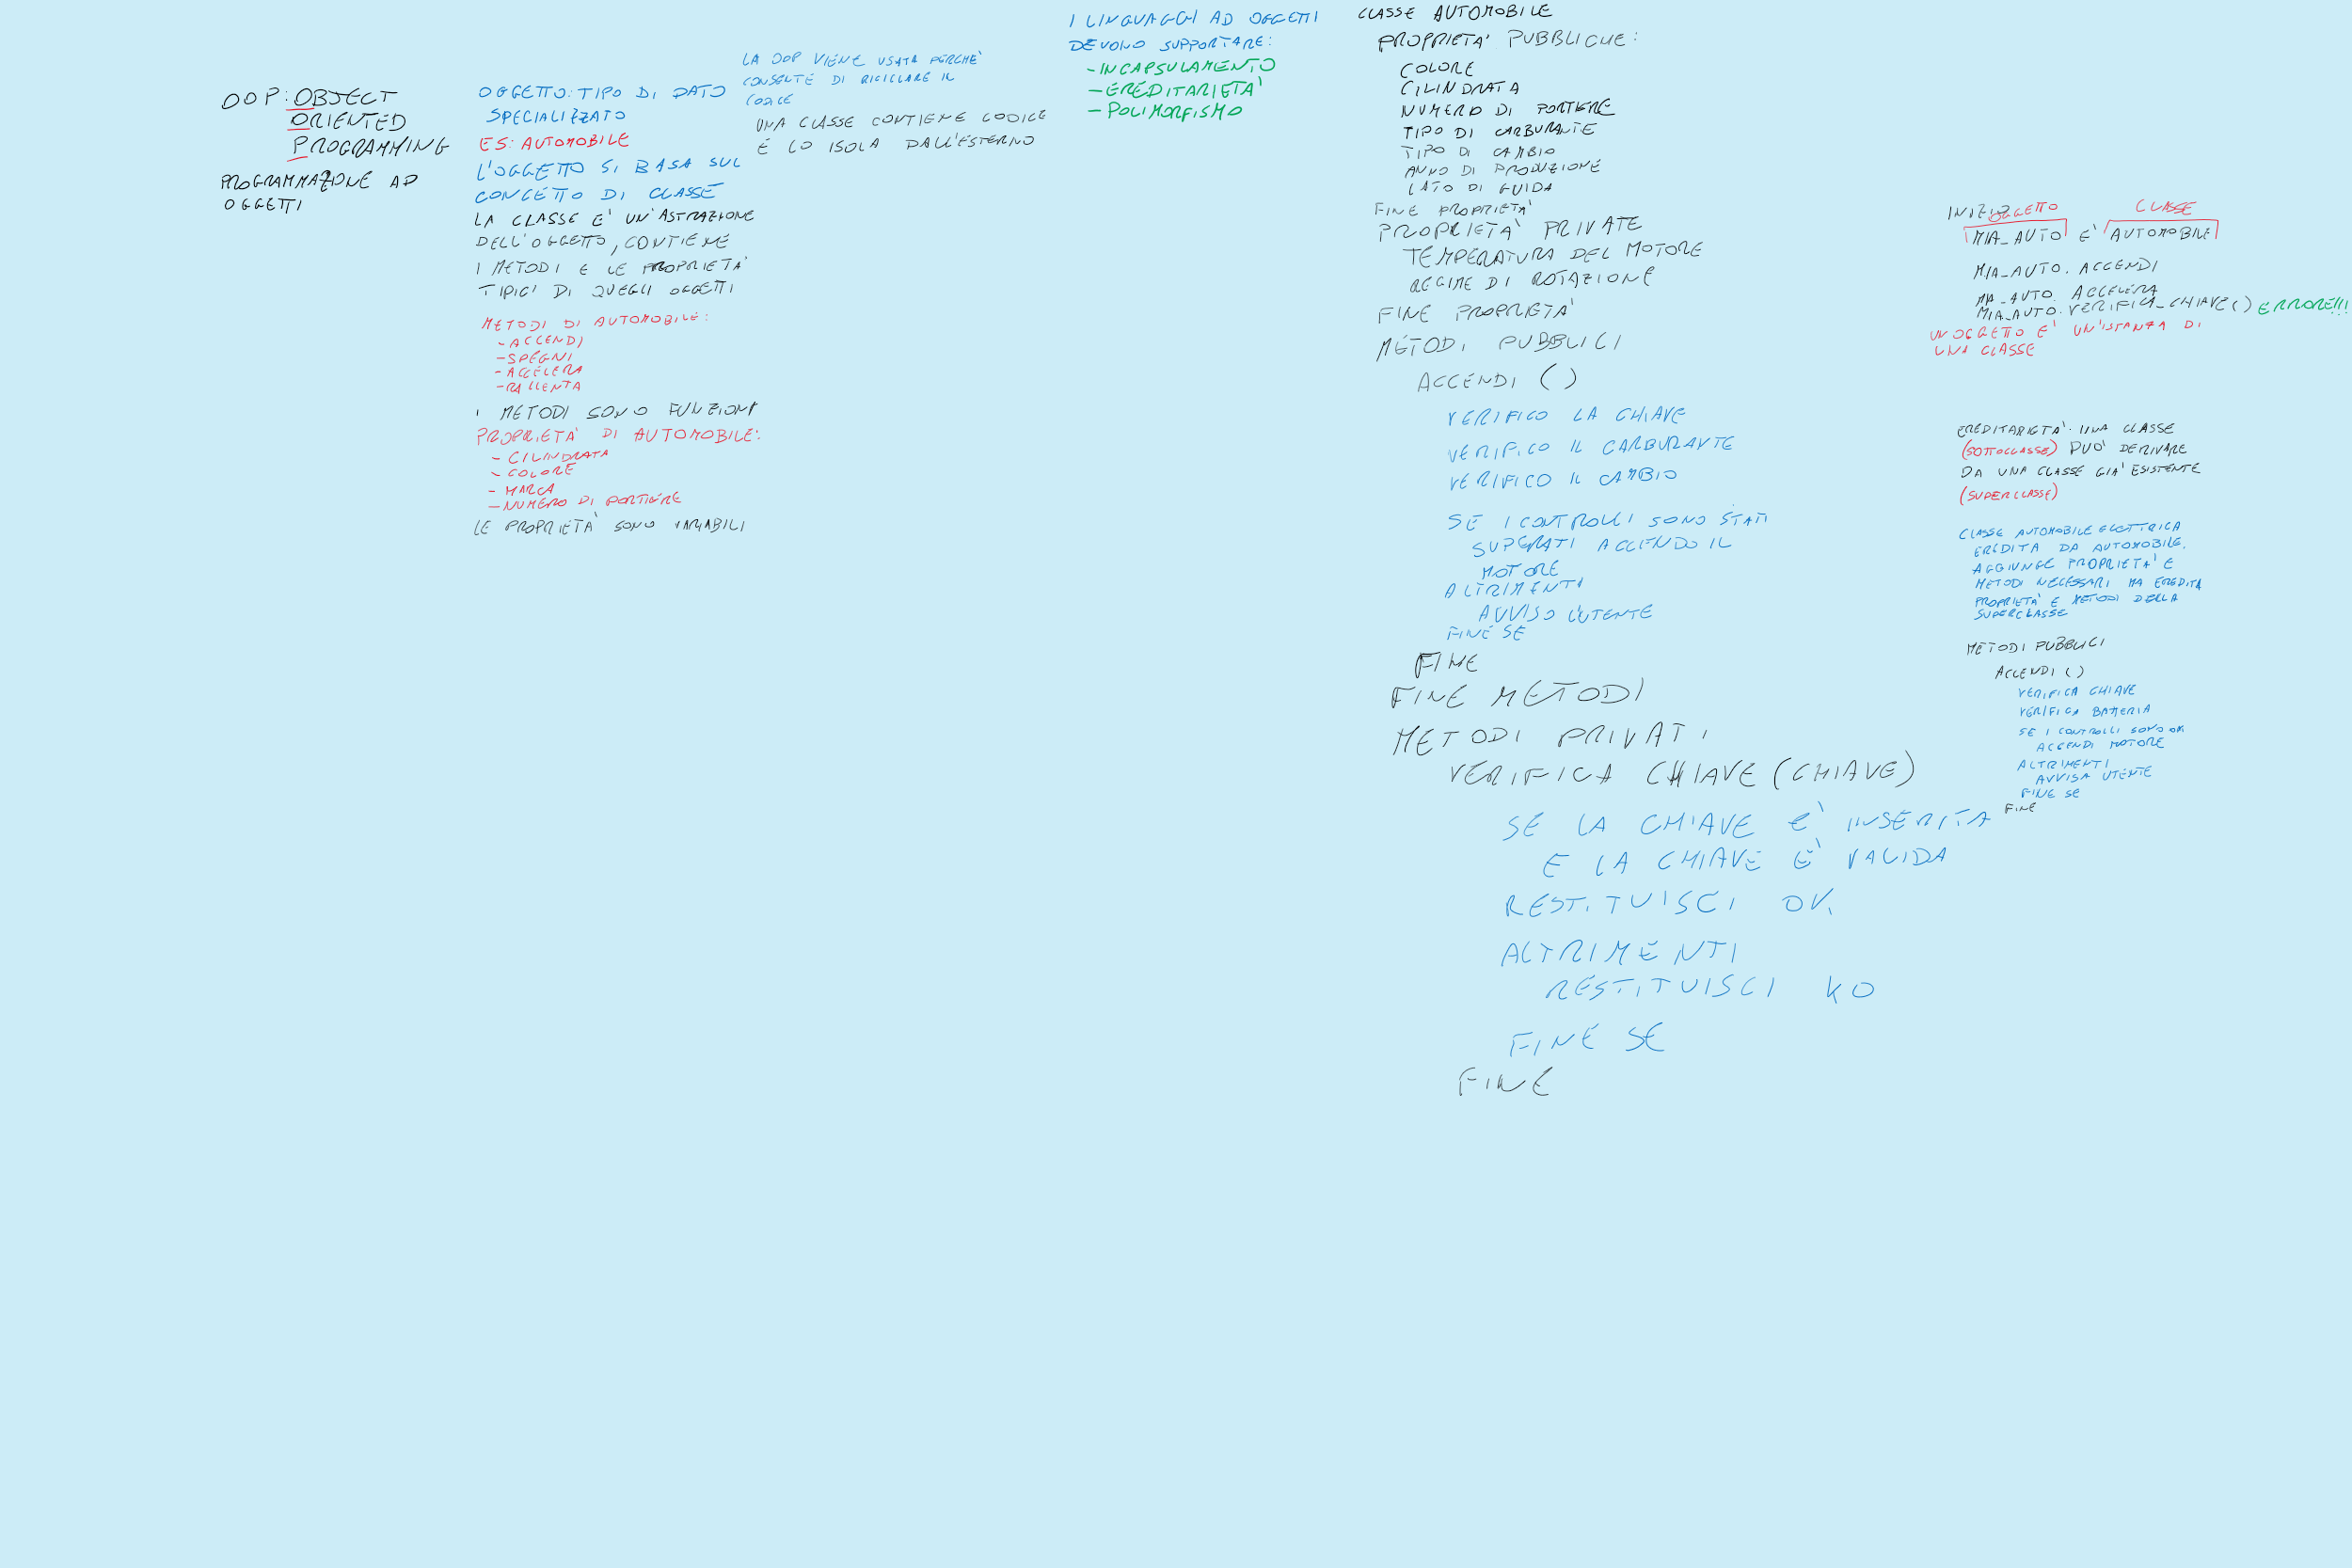 OOP: OBJECT
ORIENTED
PROGRAMMING
PROGRAMMAZIONE AD
OGGETTI
OGGETTO: TIPO DI DATO
SPECIALIZZATO
ES: AUTOMOBILE
L'OGGETTO SI BASA SUL
CONCETTO DI CLASSE
LA CLASSE E' UN'ASTRAZIONE
DELL'OGGETTO, CONTIENE
I METODI E LE PROPRIETA'
TIPICI DI QUEGLI OGGETTI
METODI DI AUTOMOBILE:
- ACCENDI
- SPEGNI
- ACCELERA
- RALLENTA
I METODI SONO FUNZIONI
PROPRIETA' DI AUTOMOBILE:
- CILINDRATA
- COLORE
- MARCA
- NUMERO DI PORTIERE
LE PROPRIETA' SONO VARIABILI
LA OOP VIENE USATA PERCHE'
CONSENTE DI RICICLARE IL
CODICE
UNA CLASSE CONTIENE CODICE
E LO ISOLA DALL'ESTERNO
I LINGUAGGI AD OGGETTI
DEVONO SUPPORTARE:
- INCAPSULAMENTO
- EREDITARIETA'
- POLIMORFISMO
CLASSE AUTOMOBILE
PROPRIETA' PUBBLICHE:
COLORE
CILINDRATA
NUMERO DI PORTIERE
TIPO DI CARBURANTE
TIPO DI CAMBIO
ANNO DI PRODUZIONE
LATO DI GUIDA
FINE PROPRIETA'
PROPRIETA' PRIVATE
TEMPERATURA DEL MOTORE
REGIME DI ROTAZIONE
FINE PROPRIETA'
METODI PUBBLICI
ACCENDI ()
VERIFICO LA CHIAVE
VERIFICO IL CARBURANTE
VERIFICO IL CAMBIO
SE I CONTROLLI SONO STATI
SUPERATI ACCENDO IL
MOTORE
ALTRIMENTI
AVVISO L'UTENTE
FINE SE
FINE
FINE METODI
METODI PRIVATI
VERIFICA CHIAVE (CHIAVE)
SE LA CHIAVE E' INSERITA
E LA CHIAVE E' VALIDA
RESTITUISCI OK
ALTRIMENTI
RESTITUISCI KO
FINE SE
FINE
INIZIO
OGGETTO CLASSE
MIA_AUTO E' AUTOMOBILE
MIA_AUTO. ACCENDI
MIA_AUTO. ACCELERA
MIA_AUTO. VERIFICA_CHIAVE() ERRORE!!!
UN OGGETTO E' UN'ISTANZA DI
UNA CLASSE
EREDITARIETA': UNA CLASSE
(SOTTOCLASSE) PUO' DERIVARE
DA UNA CLASSE GIA' ESISTENTE
(SUPERCLASSE)
CLASSE AUTOMOBILE ELETTRICA
EREDITA DA AUTOMOBILE.
AGGIUNGE PROPRIETA' E
METODI NECESSARI MA EREDITA
PROPRIETA' E METODI DELLA
SUPERCLASSE
METODI PUBBLICI
ACCENDI ()
VERIFICA CHIAVE
VERIFICA BATTERIA
SE I CONTROLLI SONO OK
ACCENDI MOTORE
ALTRIMENTI
AVVISA UTENTE
FINE SE
FINE